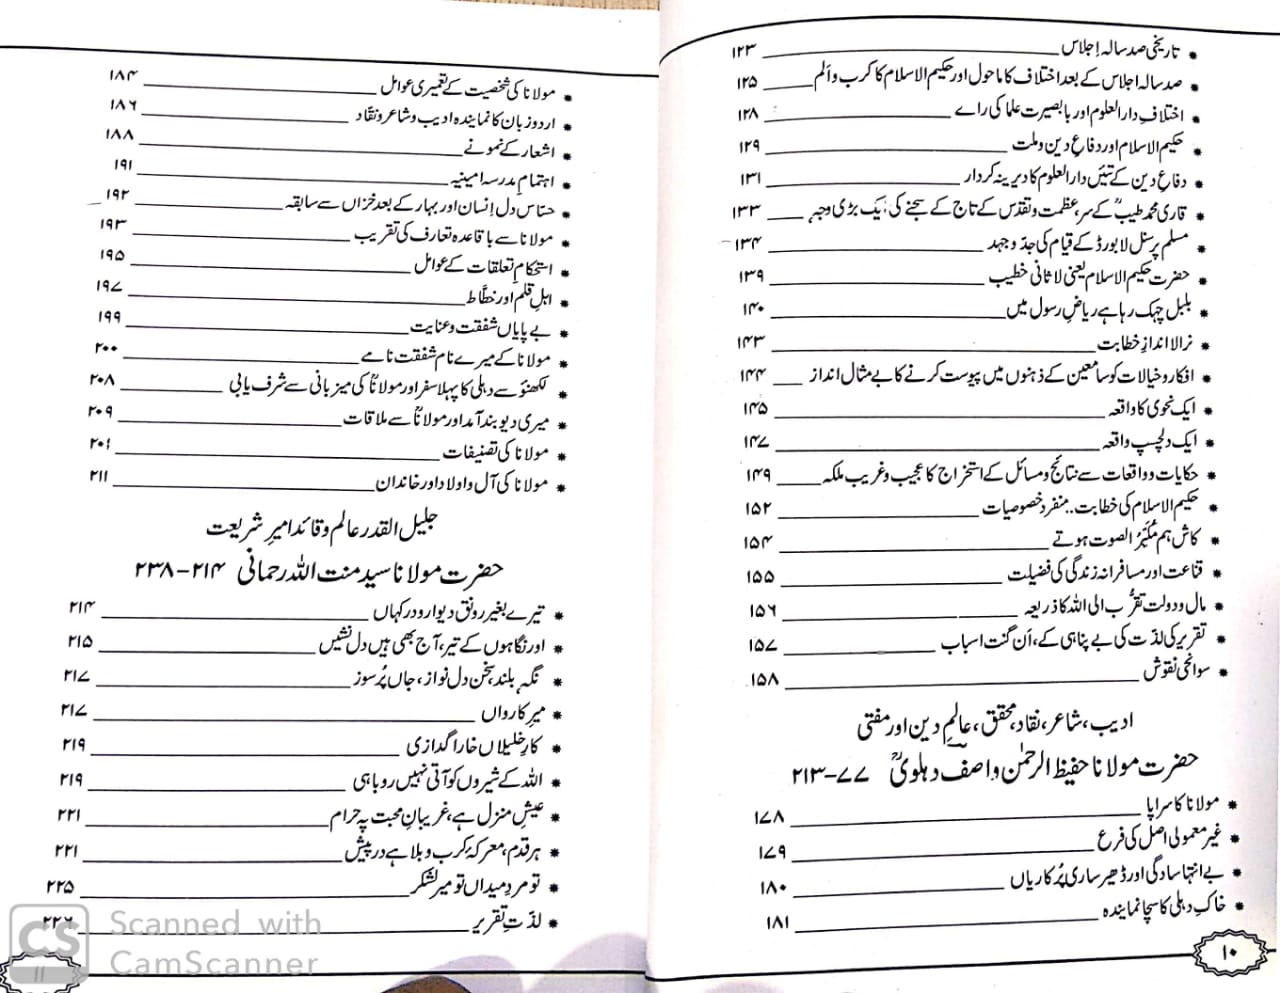 تاریخی صد سالہ اجلاس ۱۲۳
صد سالہ اجلاس کے بعد اختلاف کا ماحول اور حکیم الاسلام کا کرب و الم ۱۲۵
اختلافِ دارالعلوم اور بابصیرت علما کی رائے ۱۲۸
حکیم الاسلام اور دفاعِ دین و ملت ۱۲۹
دفاعِ دین کے تئیں دارالعلوم کا دیرینہ کردار ۱۳۱
قاری محمد طیبؒ کے سر، عظمت و تقدّس کے تاج کے سجنے کی ایک بڑی وجہ ۱۳۳
مسلم پرسنل لا بورڈ کے قیام کی جدّ و جہد ۱۳۴
حضرت حکیم الاسلام یعنی لا ثانی خطیب ۱۳۹
بلبل چہک رہا ہے ریاضِ رسول میں ۱۴۰
نرالا اندازِ خطابت ۱۴۳
افکار و خیالات کو سامعین کے ذہنوں میں پیوست کرنے کا بے مثال انداز ۱۴۴
ایک نحوی کا واقعہ ۱۴۵
ایک دلچسپ واقعہ ۱۴۷
حکایات و واقعات سے نتائج و مسائل کے استخراج کا عجیب و غریب ملکہ ۱۴۹
حکیم الاسلام کی خطابت.. منفرد خصوصیات ۱۵۲
کاش ہم مُکبّرُ الصوت ہوتے ۱۵۴
قناعت اور مسافرانہ زندگی کی فضیلت ۱۵۵
مال و دولت تقرُّب الی اللہ کا ذریعہ ۱۵۶
تقریر کی لذّت کی بے پناہی کے، اَن گنت اسباب ۱۵۷
سوانحی نقوش ۱۵۸
ادیب، شاعر، نقاد، محقق، عالمِ دین اور مفتی
حضرت مولانا حفیظ الرحمٰن واصف دہلویؒ ۷۷–۲۱۳
مولانا کا سراپا ۱۷۸
غیر معمولی اصل کی فرع ۱۷۹
بے انتہا سادگی اور ڈھیر ساری پُرکاریاں ۱۸۰
خاکِ دہلی کا سچا نمایندہ ۱۸۱
۱۰
مولانا کی شخصیت کے تعمیری عوامل ۱۸۴
اردو زبان کا نمایندہ ادیب و شاعر و نقّاد ۱۸۶
اشعار کے نمونے ۱۸۸
اہتمامِ مدرسہ امینیہ ۱۹۱
حسّاس دل اِنسان اور بہار کے بعد خزاں سے سابقہ ۱۹۲
مولانا سے باقاعدہ تعارف کی تقریب ۱۹۳
استحکامِ تعلقات کے عوامل ۱۹۵
اہلِ قلم اور خطّاط ۱۹۷
بے پایاں شفقت و عنایت ۱۹۹
مولانا کے میرے نام شفقت نامے ۲۰۰
لکھنؤ سے دہلی کا پہلا سفر اور مولاناؒ کی میزبانی سے شرف یابی ۲۰۸
میری دیوبند آمد اور مولاناؒ سے ملاقات ۲۰۹
مولانا کی تصنیفات ۲۰۱
مولانا کی آل و اولاد اور خاندان ۲۱۱
جلیل القدر عالم و قائد امیرِ شریعت
حضرت مولانا سید منت اللہ رحمانی ۲۱۴–۲۳۸
تیرے بغیر رونق دیوار و در کہاں ۲۱۴
اور نگاہوں کے تیر، آج بھی ہیں دل نشیں ۲۱۵
نگہ بلند، سخن دل نواز، جاں پُرسوز ۲۱۷
میرِ کارواں ۲۱۷
کارِ خلیلاں خارا گدازی ۲۱۹
اللہ کے شیروں کو آتی نہیں روباہی ۲۱۹
عیشِ منزل ہے، غریبانِ محبت پہ حرام ۲۲۱
ہر قدم، معرکۂ کرب و بلا ہے درپیش ۲۲۱
تو مردِ میداں تو میرِ لشکر ۲۲۵
لذّتِ تقریر ۲۲۶
۱۱
CS Scanned with
CamScanner